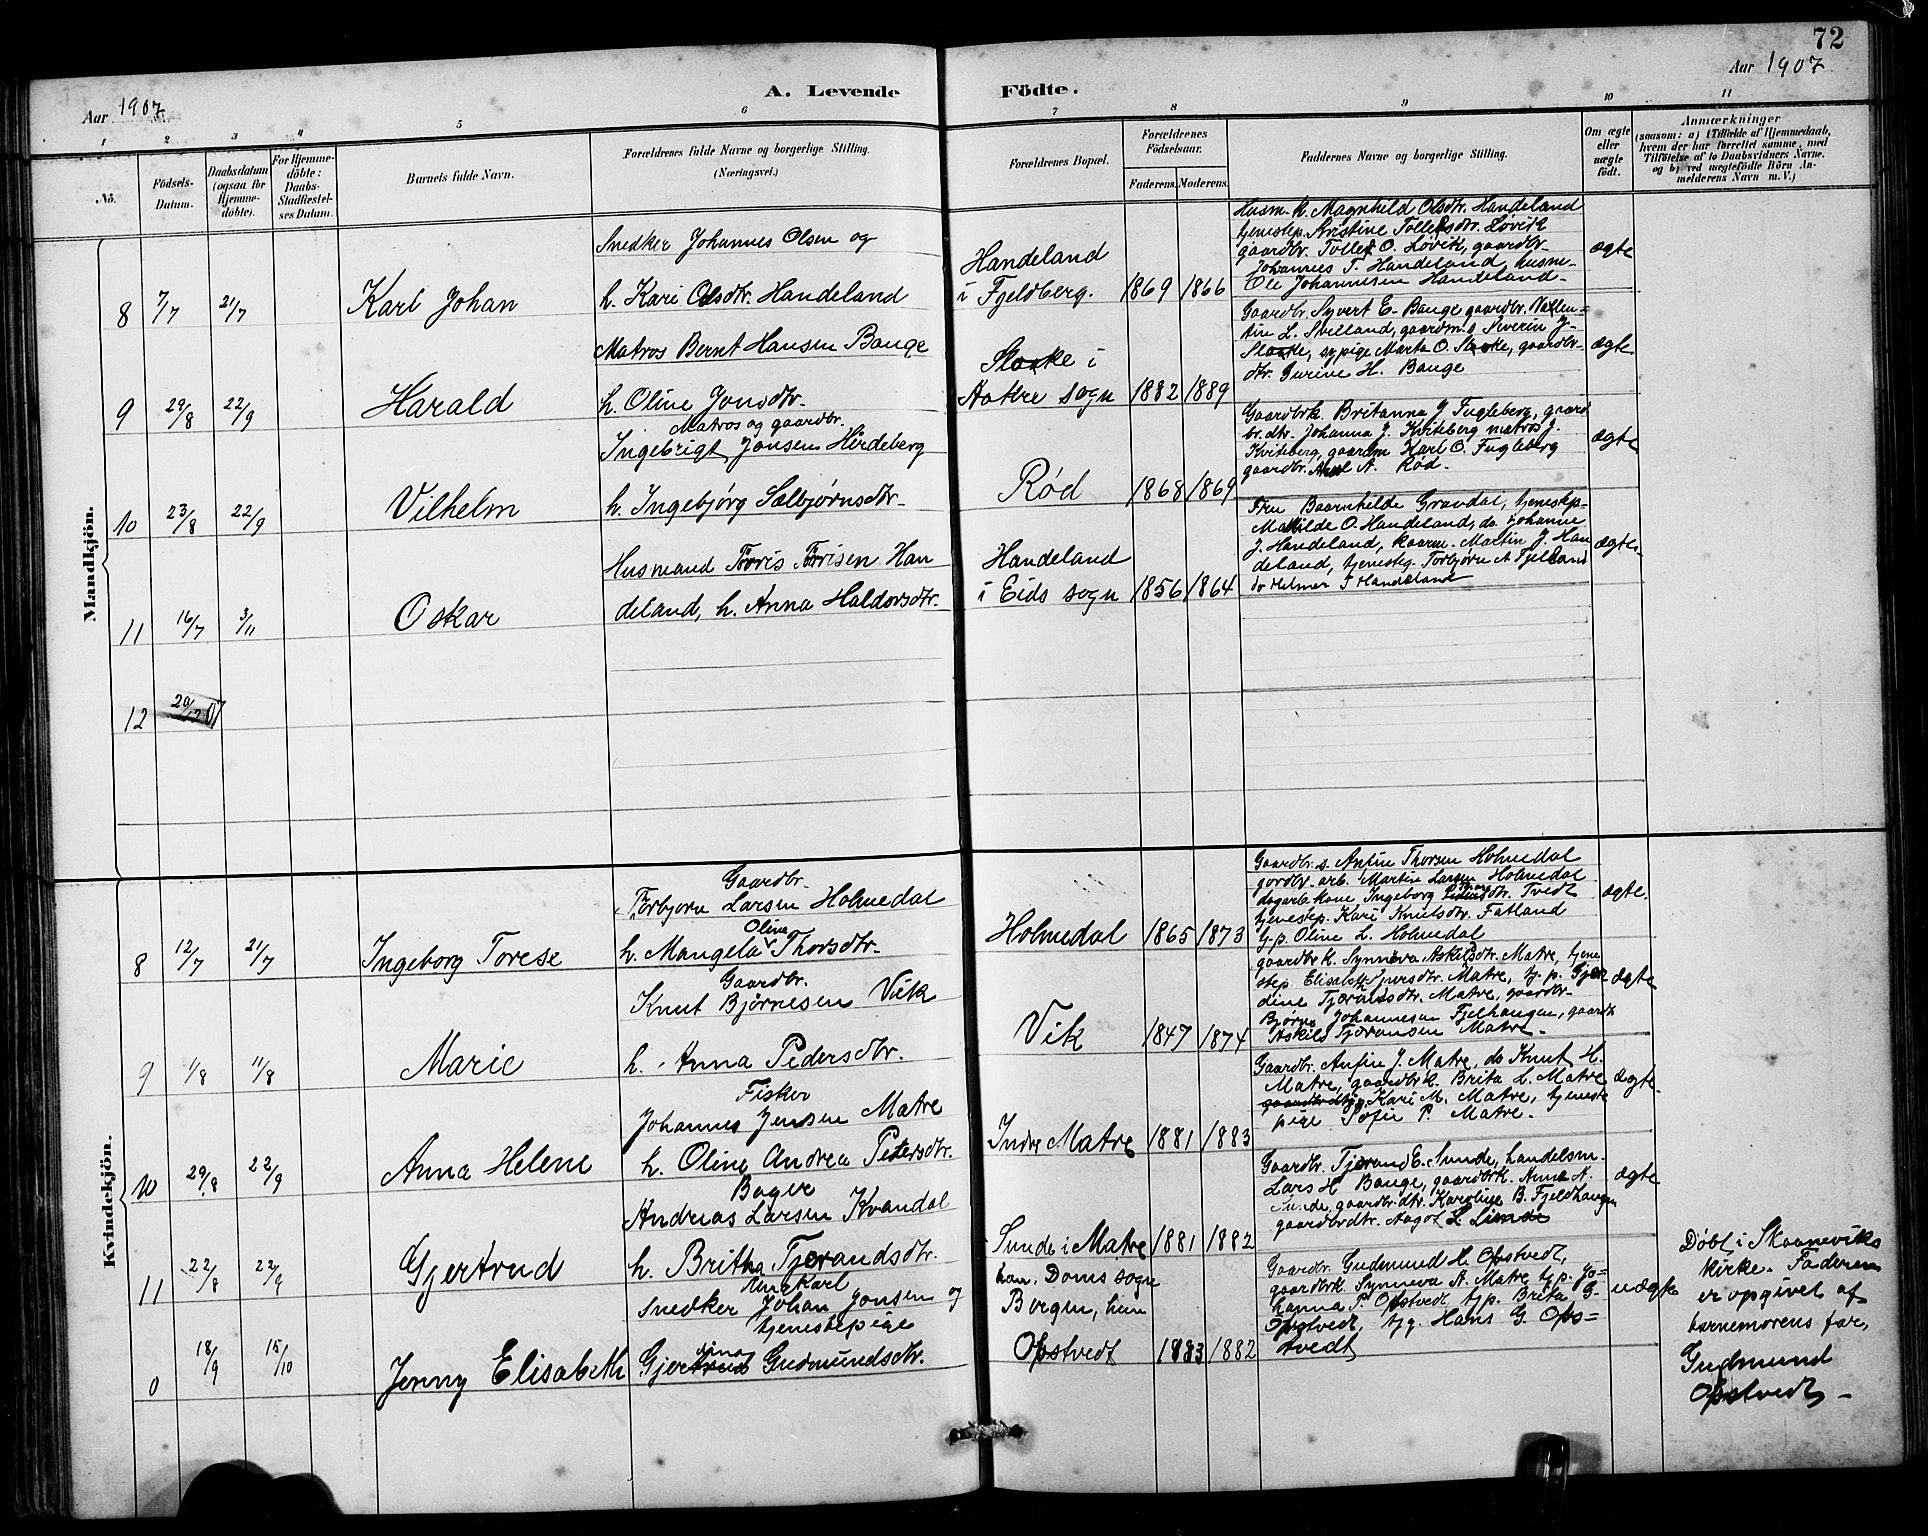 72
Aar 1907
A. Levende
Födte.
Aar 1907
1
2
3
4
5
6
7
8
9
10
11
No.
Födsels-
Datum.
Daabsdatum
(ogsaa for
Hjemme-
döbte).
For Hjemme-
döbte:
Daabs-
Stadfæstel-
ses Datum.
Barnets fulde Navn.
Forældrenes fulde Navne og borgerlige Stilling.
(Næringsvei.)
Forældrenes Bopæl.
Forældrenes
Födselsaar.
Faderens. Moderens.
Faddernes Navne og borgerlige Stilling.
Om ægte
eller
uægte
födt.
Anmærkninger
(saasom: a) i Tilfælde af Hjemmedaab,
hvem der har forrettet samme, med
Tilföielse af to Daabsvidners Navne,
og b) ved uægtefödte Börn An-
melderens Navn m. V.)
Mandkjön.
8
7/7
21/7
Karl Johan
Snedker Johannes Olsen og
h. Kari Olsdtr. Handeland
Handeland
i Fjeldberg.
1869
1866
Husm. k. Magnhild Olsdtr. Handeland
tjenestep. Kristine Tollefsdtr. Løvik
gaardbr. Tollef O. Løvik, gaardbr.
Johannes T. Handeland, husm.
Ole Johannesen Handeland.
ægte
9
29/8
22/9
Harald
Matros Bernt Hansen Bauge
h. Oline Jonsdtr.
i
sogn
1882
1889
Gaardbr. Syvert E. Bauge gaardbr. Vallen=
tin L. Svelland, gaardm. s. Severin J.
sypige Marta O. gaardbr.
dtr. Gurine H. Bauge
ægte
10
23/8
22/9
Vilhelm
Matros og gaardbr.
Ingebrigt Jonsen Hördeberg
h. Ingebjørg Sælbjørnsdtr.
Rød
1868
1869
Gaardbrk. Britanna J. Fugleberg, gaard
br. dtr. Johanna J. Kviteberg matros J.
Kviteberg, gaardm Karl O. Fugleberg
gaardbr. A. Rød.
ægte
11
16/7
3/11
Oskar
Husmand Tøris Tørisen Han
deland, h. Anna Haldorsdtr.
Handeland
i Eids sogn
1856
1864
Fru Gravdal, tjenestep.
Mathilde O. Handeland, do. Johanne
J. Handeland, Martin J. Han
deland, tjenesteg. Torbjørn A Fjelland
do Helmer T Handeland
ægte.
12
Kvindekjön.
8
12/7
21/7
Ingeborg Torese
Gaardbr.
Torbjørn Larsen Holmedal
Oline
h. Mangela Thorsdtr.
Holmedal
1865
1873
Gaardbr. s. Anfin Thorsen Holmedal
arb. Martin Larsen Holmedal
dagarb. kone Ingeborg Tvedt
tjenestep. Kari Knutsdtr. Fatland
tj. p. Oline L. Holmedal
ægte.
9
1/8
11/8
Marie
Gaardbr.
Knut Bjørnesen Vik
h. Anna Pedersdtr.
Vik
1847
1874
gaardbr k. Synneva Askilsdtr. Matre, tjene
step. Elisabeth Ivarsdtr. Matre, tj. p. Gjer
dine Tjerandsdtr. Matre, gaardbr.
Bjørne Johannesen Fjelhaugen, gaardb
Askild Tjerandsen Matre.
ægte
10
29/8
22/9
Anna Helene
Fisker
Johannes Jensen Matre
h. Oline Andrea Petersdtr.
Indre Matre
1881
1883
Gaardbr. Anfin J. Matre, do Knut H.
Matre, gaardbrk. Brita L. Matre
Kari M. Matre, tjeneste
pige Sofie P. Matre.
ægte.
11
22/8
22/9
Gjertrud
Bager
Andreas Larsen Kvandal
h. Britha Tjerandsdtr.
Sunde i Matre
1881
1882
Gaardbr. Tjerand E. Sunde, handelsm.
Lars H. Bauge, gaardbrk. Anna A.
Sunde, gaardbr.dtr. Karoline B. Fjeldhaugen
gaardbrdtr. Aagot L. Sunde
ægte
0
18/9
15/10
Jenny Elisabeth
Ungkarl
Snedker Johan Jonsen og
tjenestepige
Gjertrud Gudmundsdtr.
han. Doms sogn
Bergen, hun
Opstvedt
1883
1882
Gaardbr. Gudmund H. Opstvedt,
gaardbrk. Synneva A. Matre, tj. p. Jo=
hanna P. Opstvedt, tj. p. Brita G.
Opstvedt, tj. g. Hans G. Ops=
tvedt
uægte
Døbt i Skaaneviks
kirke. Faderen
er opgivet af
barnemorens far,
Gudmund
Opstvedt